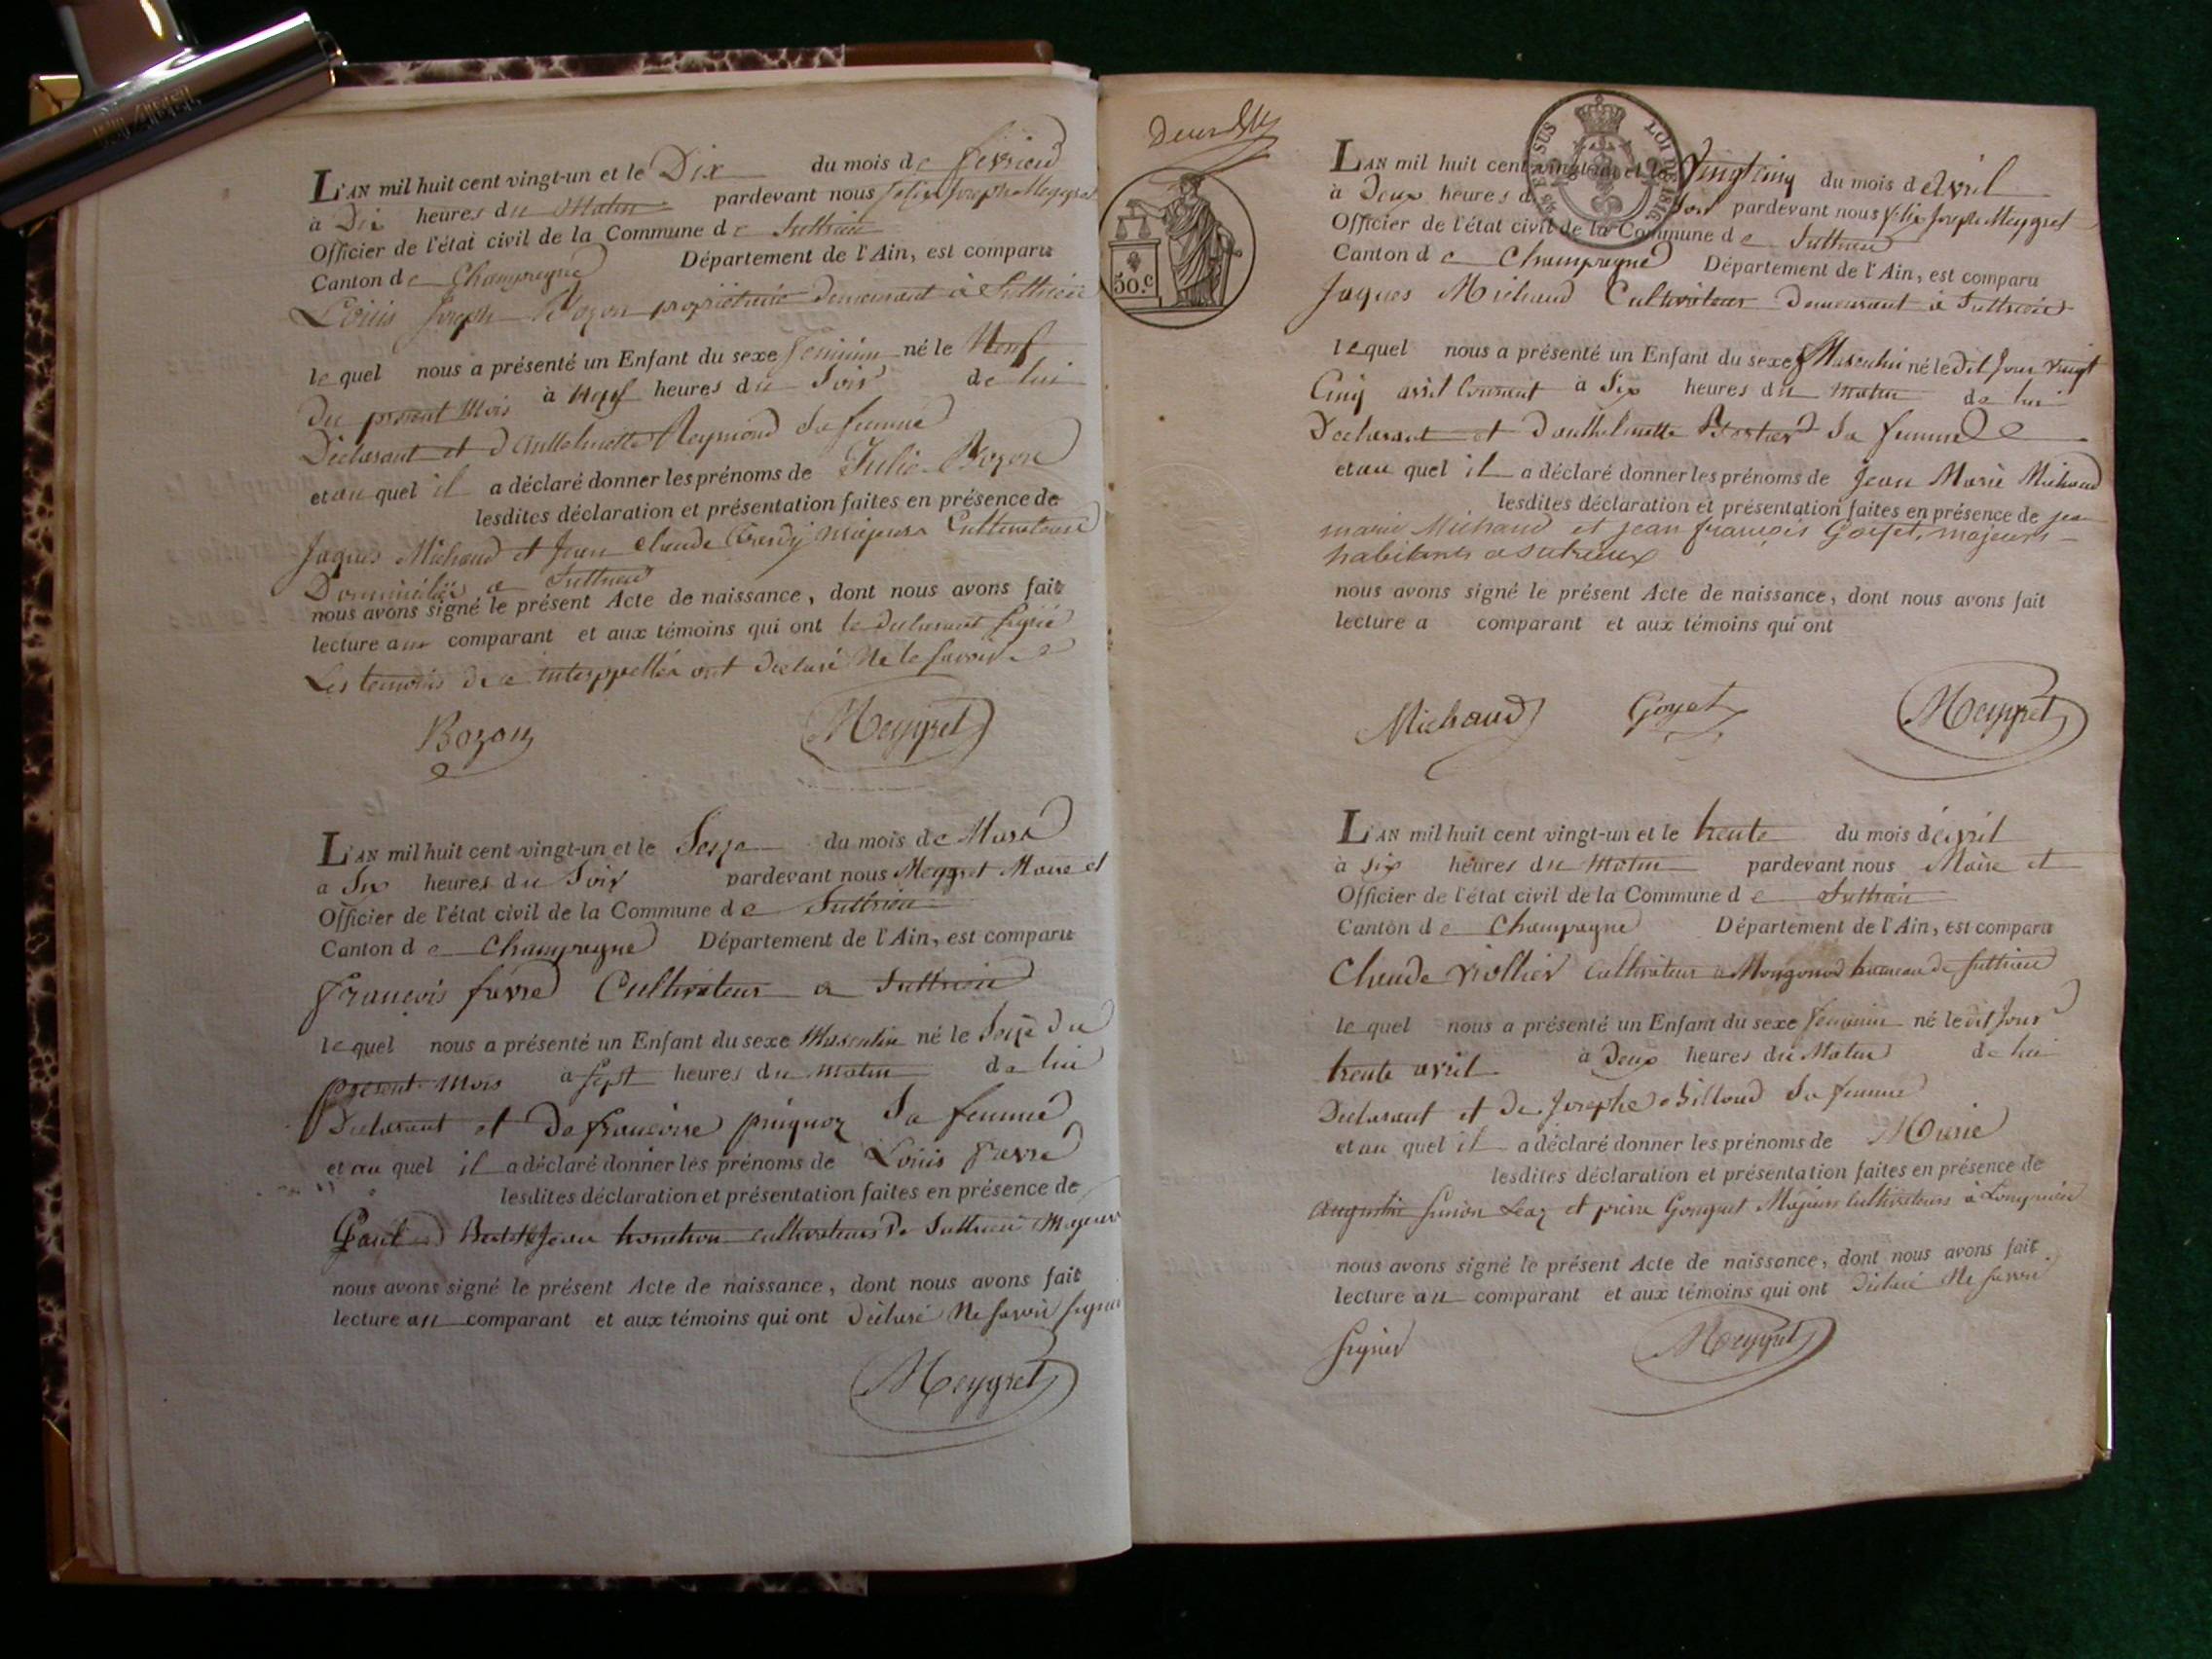 L'AN mil huit cent vingt-un et le Dix du mois de fevrier
à Dix heures du Matin pardevant nous felix Joseph Meygret
Officier de l'état civil de la Commune de Suttrieu
Canton de Champagne Département de l'Ain, est comparu
Louis Joseph Bozon propriétaire demeurant à Suttrieu
lequel nous a présenté un Enfant du sexe feminin né le Neuf
du présent mois à Neuf heures du Soir de lui
Déclarant et d'Anthelmette Reymond Sa femme
et au quel il a déclaré donner les prénoms de Julie Bozon
lesdites déclaration et présentation faites en présence de
Jaques Michaud et Jean Claude majeurs Cultivateurs
Domiciliés a Suttrieu
nous avons signé le présent Acte de naissance, dont nous avons fait
lecture au comparant et aux témoins qui ont le declarant signé
Les temoins de ce interppellés ont Declaré Ne le savoir
Bozon Meygret
L'AN mil huit cent vingt-un et le Seize du mois de Mars
à Six heures du Soir pardevant nous Meygret Maire et
Officier de l'état civil de la Commune de Suttrieu
Canton de Champagne Département de l'Ain, est comparu
François favre Cultivateur a Suttrieu
lequel nous a présenté un Enfant du sexe Masculin né le Seize du
présent Mois à sept heures du matin de lui
Declarant et de françoise Sa femme
et au quel il a déclaré donner les prénoms de Louis favre
lesdites déclaration et présentation faites en présence de
Jean cultivateurs De Suttrieu Majeurs
nous avons signé le présent Acte de naissance, dont nous avons fait
lecture au comparant et aux témoins qui ont déclaré Ne savoir signer
Meygret
50.C
SUS LOI DE 1816
L'AN mil huit cent vingt-un et le Vingt cinq du mois d'Avril
à Deux heures du Soir pardevant nous felix Joseph Meygret
Officier de l'état civil de la Commune de Suttrieu
Canton de Champagne Département de l'Ain, est comparu
Jaques Michaud Cultivateur demeurant à Suttrieu
lequel nous a présenté un Enfant du sexe Masculin né le dit jour vingt
Cinq avril Courant à Six heures du matin de lui
Declarant et d'anthelmette Sa femme
et au quel il a déclaré donner les prénoms de Jean Marie Michaud
lesdites déclaration et présentation faites en présence de jean
marie Michaud et jean françois Goyet, majeurs
habitants a sutrieux
nous avons signé le présent Acte de naissance, dont nous avons fait
lecture a comparant et aux témoins qui ont
Michaud Goyet Meygret
L'AN mil huit cent vingt-un et le trente du mois d'avril
à six heures du matin pardevant nous Maire et
Officier de l'état civil de la Commune de Suttrieu
Canton de Champagne Département de l'Ain, est comparu
Claude Viollier Cultivateur a hameau de Suttrieu
lequel nous a présenté un Enfant du sexe feminin né le dit jour
trente avril à Deux heures du Matin de lui
Declarant et de Josephe Billoud Sa femme
et au quel il a déclaré donner les prénoms de Marie
lesdites déclaration et présentation faites en présence de
augustin et pierre Majeurs Cultivateurs à
nous avons signé le présent Acte de naissance, dont nous avons fait
lecture au comparant et aux témoins qui ont Déclaré Ne savoir
signer Meygret